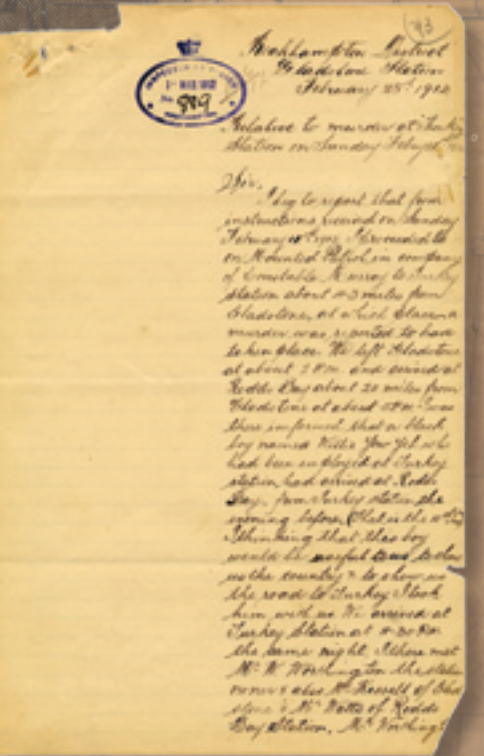 93
Rockhampton District
Gladstone Station
February 25th 1902
889
Relative to murder at Turkey
Station on Sunday Feby
Sir,
I beg to report that from
instructions received on Sunday
February 1902 I proceeded to
on Mounted Patrol in company
of Constable Murray to Turkey
Station about 43 miles from
Gladstone, at which place a
murder was reported to have
taken place. We left Gladstone
at about 2 P.m. and arrived at
Rodds Bay about 20 miles from
Gladstone at about P.m. I was
there informed that a black
boy named Willie who
had been employed at Turkey
station had arrived at Rodds
Bay, from Turkey station the
evening before, (that is the
I thinking that this boy
would be useful to us to show
us the country & to show us
the road to Turkey I took
him with us We arrived at
Turkey Station at P.m.
the same night. I there met
Mr. W. Worthington the station
owner & also Mr. of Glad
stone & Mr. Watts of Rodds
Bay Station. Mr. Worthingt